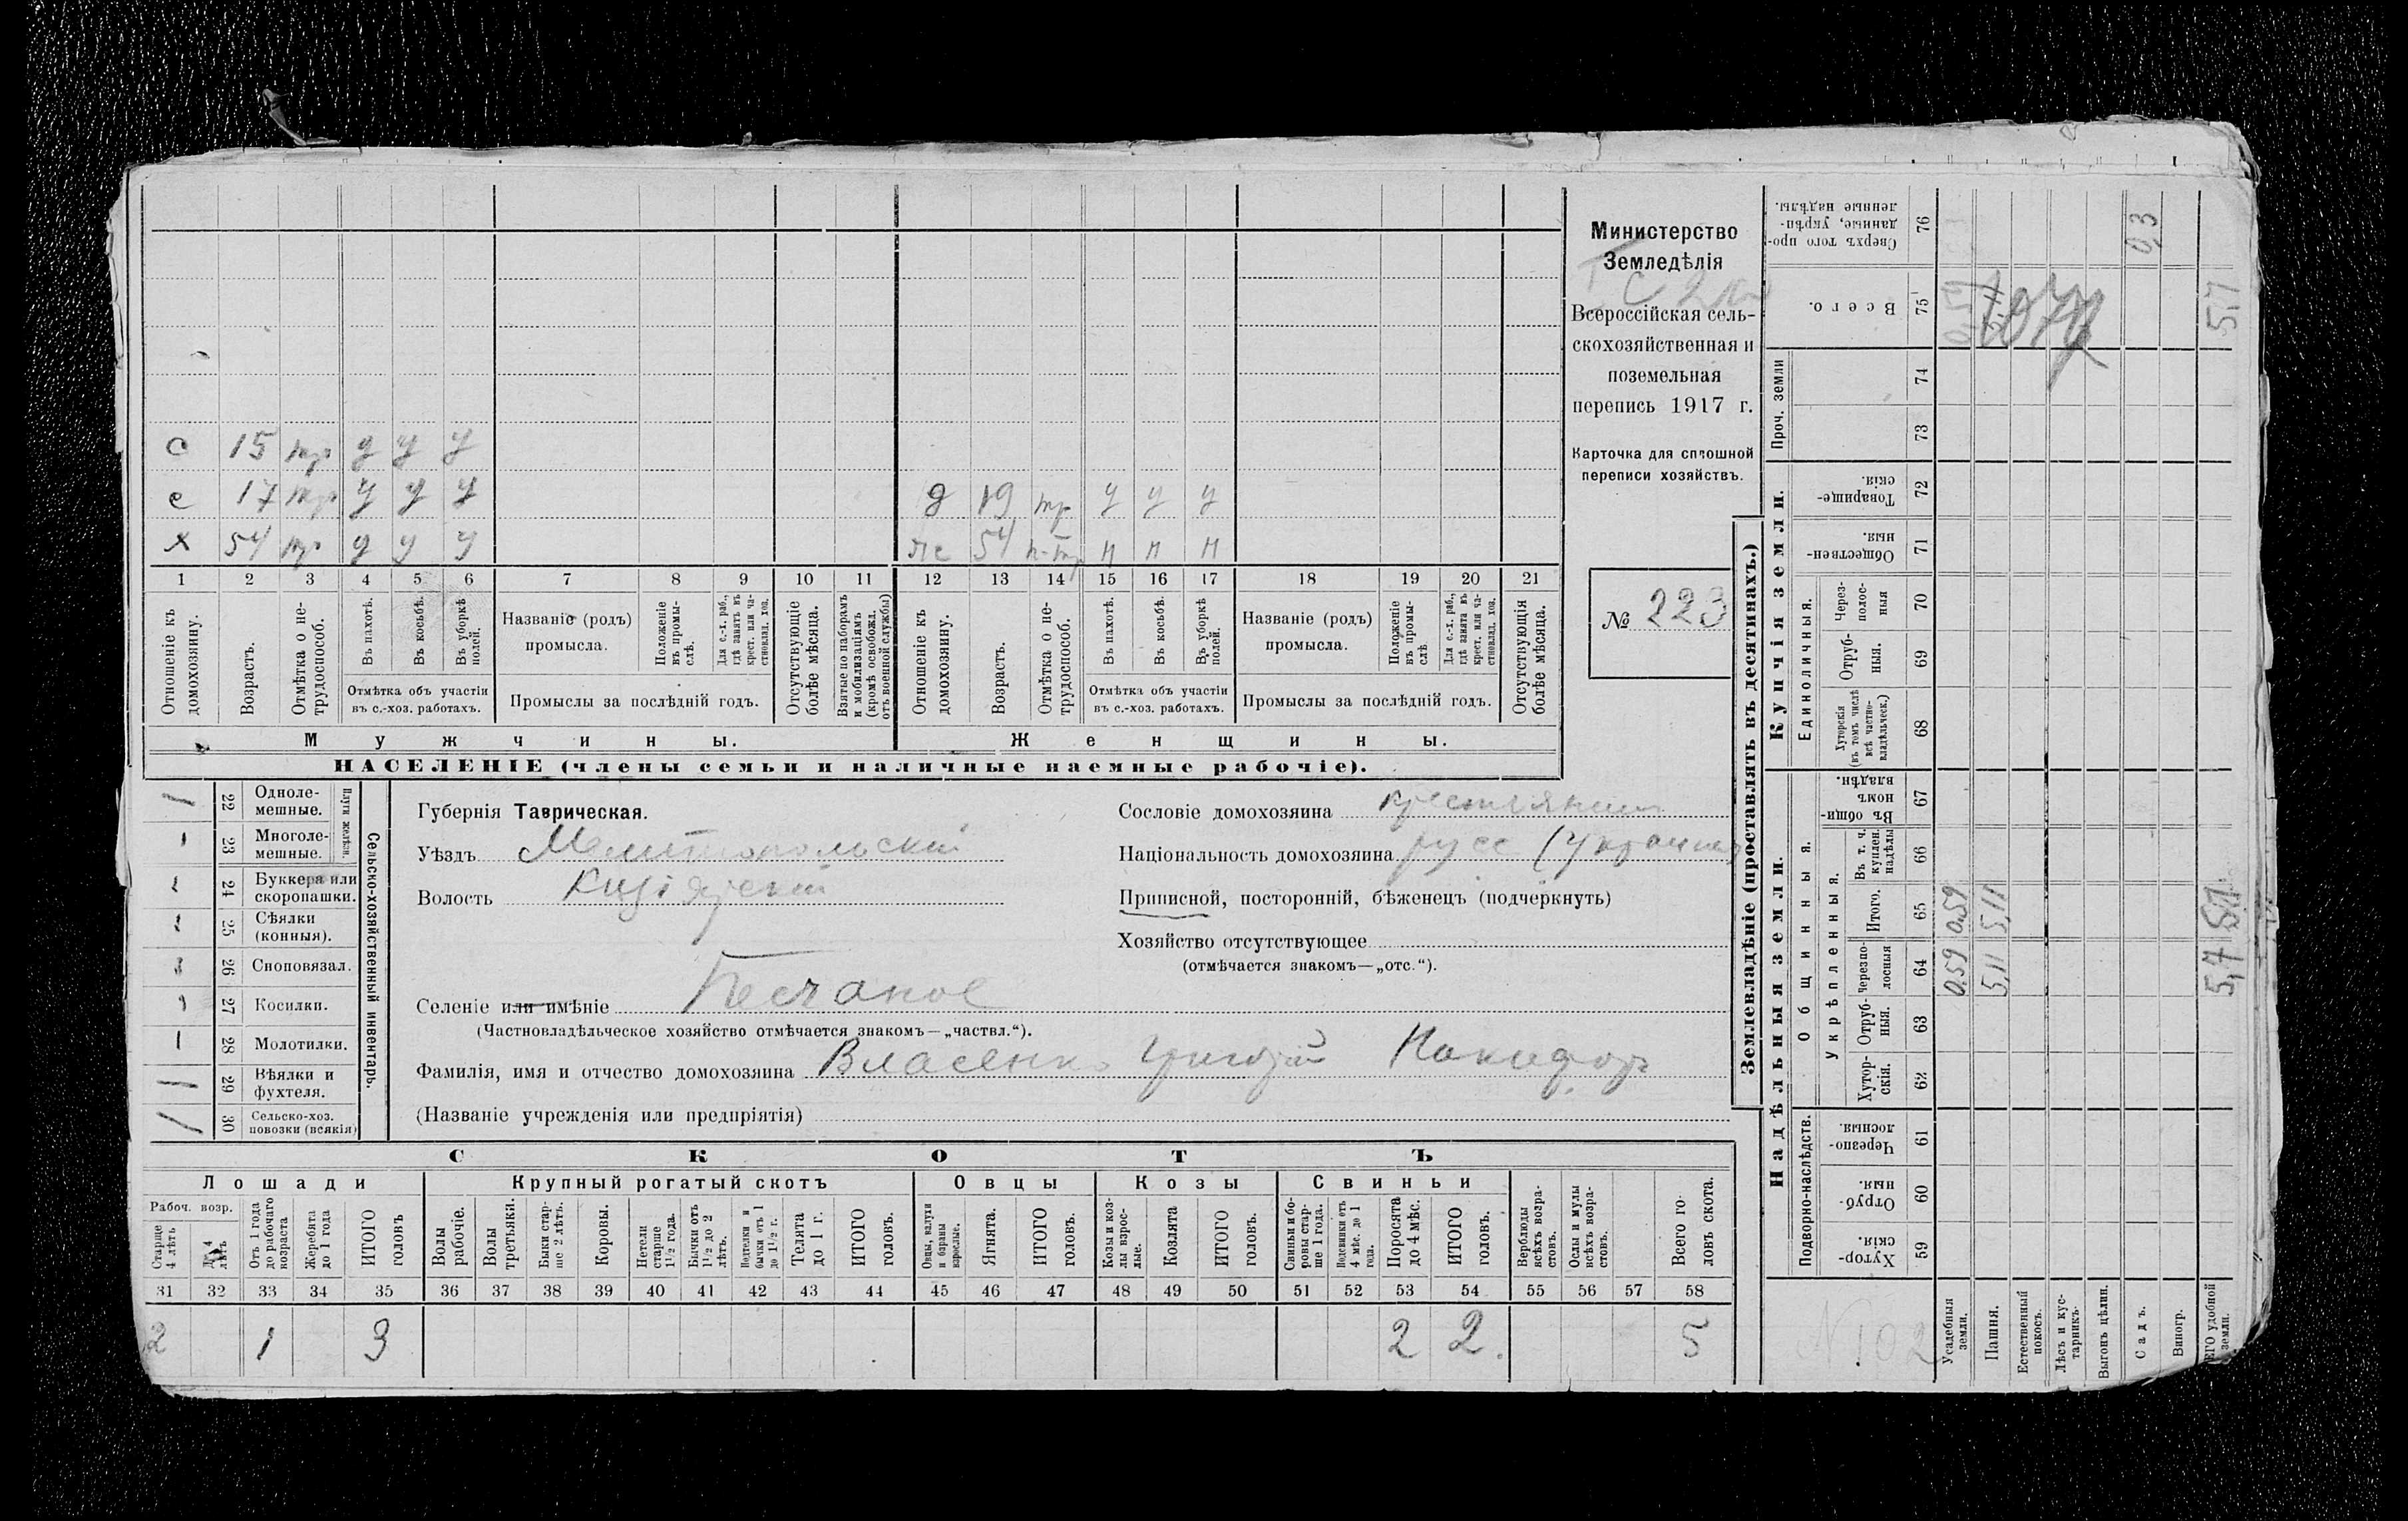 Министерство
Земледѣлія
Всероссійская сель-
скохозяйственная и
поземельная
перепись 1917 г.
Карточка для сплошной
переписи хозяйствъ.
№ 223
с 15 тр у у у
с 17 тр у у у д 19 тр у у у
х 54 тр у у у же 54 п-тр н н н
1 2 3 4 5 6 7 8 9 10 11 12 13 14 15 16 17 18 19 20 21
Отношеніе къ домохозяину.
Возрастъ.
Отмѣтка о не-трудоспособ.
Въ пахотѣ.
Въ косьбѣ.
Въ уборкѣ полей.
Отмѣтка объ участіи
въ с.-хоз. работахъ.
Названіе (родъ)
промысла.
Положеніе въ промы-слѣ.
Для с.-х. раб., гдѣ занятъ въ крест. или ча-стновлад. хоз.
Промыслы за послѣдній годъ.
Отсутствующіе болѣе мѣсяца.
Взятые по наборамъ и мобилизаціямъ (кромѣ освобожд. отъ военной службы)
Отношеніе къ домохозяину.
Возрастъ.
Отмѣтка о не-трудоспособ.
Въ пахотѣ.
Въ косьбѣ.
Въ уборкѣ полей.
Отмѣтка объ участіи
въ с.-хоз. работахъ.
Названіе (родъ)
промысла.
Положеніе въ промы-слѣ
Для с.-х. раб., гдѣ занята въ крест. или ча-стновлад. хоз.
Промыслы за послѣдній годъ.
Отсутствующія болѣе мѣсяца.
Мужчины. Женщины.
НАСЕЛЕНІЕ (члены семьи и наличные наемные рабочіе).
Сельско-хозяйственный инвентарь.
Плуги желѣзн.
1 22 Одноле-мешные.
23 Многоле-мешные.
24 Буккера или скоропашки.
25 Сѣялки (конныя).
26 Сноповязал.
27 Косилки.
28 Молотилки.
1 29 Вѣялки и фухтеля.
1 30 Сельско-хоз. повозки (всякія)
Губернія Таврическая.
Уѣздъ Мелитопольскій
Волость
Селеніе или имѣніе Песчаное
(Частновладѣльческое хозяйство отмѣчается знакомъ—„частвл.“).
Фамилія, имя и отчество домохозяина Власенко Григорій Никифор
(Названіе учрежденія или предпріятія)
Сословіе домохозяина крестьянин
Національность домохозяина русс (украин)
Приписной, посторонній, бѣженецъ (подчеркнуть)
Хозяйство отсутствующее
(отмѣчается знакомъ—„отс.“).
СКОТЪ
Лошади Крупный рогатый скотъ Овцы Козы Свиньи
Рабоч. возр.
Старше 4 лѣтъ
До 4 лѣтъ
Отъ 1 года до рабочаго возраста
Жеребята до 1 года
ИТОГО головъ
Волы рабочіе.
Волы третьяки.
Быки стар-ше 2 лѣтъ.
Коровы.
Нетели старше 1½ года.
Бычки отъ 1½ до 2 лѣтъ.
Подтелки и бычки отъ 1 до 1½ г.
Телята до 1 г.
ИТОГО головъ.
Овцы, валухи и бараны взрослые.
Ягнята.
ИТОГО головъ.
Козы и коз-лы взрос-лые.
Козлята
ИТОГО головъ.
Свиньи и бо-ровы стар-ше 1 года.
Подсвинки отъ 4 мѣс. до 1 года.
Поросята до 4 мѣс.
ИТОГО головъ.
Верблюды всѣхъ возра-стовъ.
Ослы и мулы всѣхъ возра-стовъ.
Всего го-ловъ скота.
31 32 33 34 35 36 37 38 39 40 41 42 43 44 45 46 47 48 49 50 51 52 53 54 55 56 57 58
2 1 3 2 2 5
Землевладѣніе (проставлять въ десятинахъ.)
Надѣльныя земли. Купчія земли. Проч. земли
Подворно-наслѣдств.
Общинныя.
Укрѣпленныя.
Единоличныя.
Хутор-скія. 59
Отруб-ныя. 60
Черезпо-лосныя. 61
Хутор-скія. 62
Отруб-ныя. 63
Черезпо-лосныя 64
Итого. 65
Въ т. ч. куплен. надѣлы 66
Въ общин-номъ владѣн. 67
Хуторскія (въ томъ числѣ всѣ частно-владѣльческ.) 68
Отруб-ныя. 69
Через-полос-ныя 70
Обществен-ныя. 71
Товарище-скія. 72
73
74
Всего. 75
Сверхъ того про-данные, укрѣп-ленные надѣлы. 76
Усадебныя земли. 0,59 0,59 0,59
Пашня. 5,11 5,11
Естественный покосъ.
Лѣсъ и кус-тарникъ.
Выгонъ цѣлин.
Садъ. 0,3
Виногр.
ЕГО удобной земли. 5,7 5,7 5,7
N 102